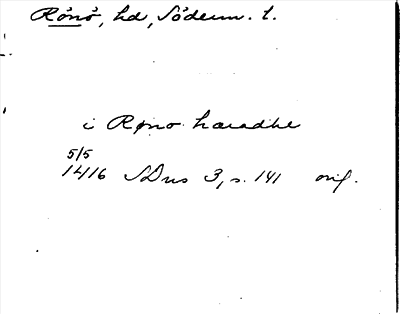 Rönö, hd, Söderm. l.
i Røno haradhe
5/5
1416 SDns 3, s. 141 orig.